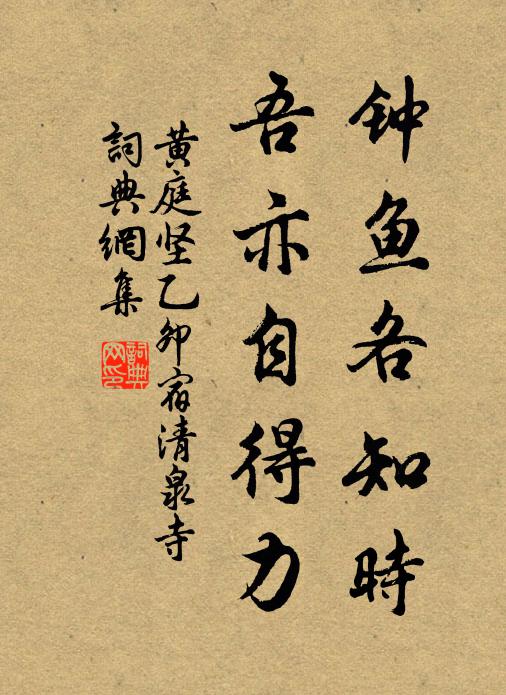 钟鱼各知時
吾亦自得力
黄庭坚乙卯宿清泉寺
詞典網集
詞典网印